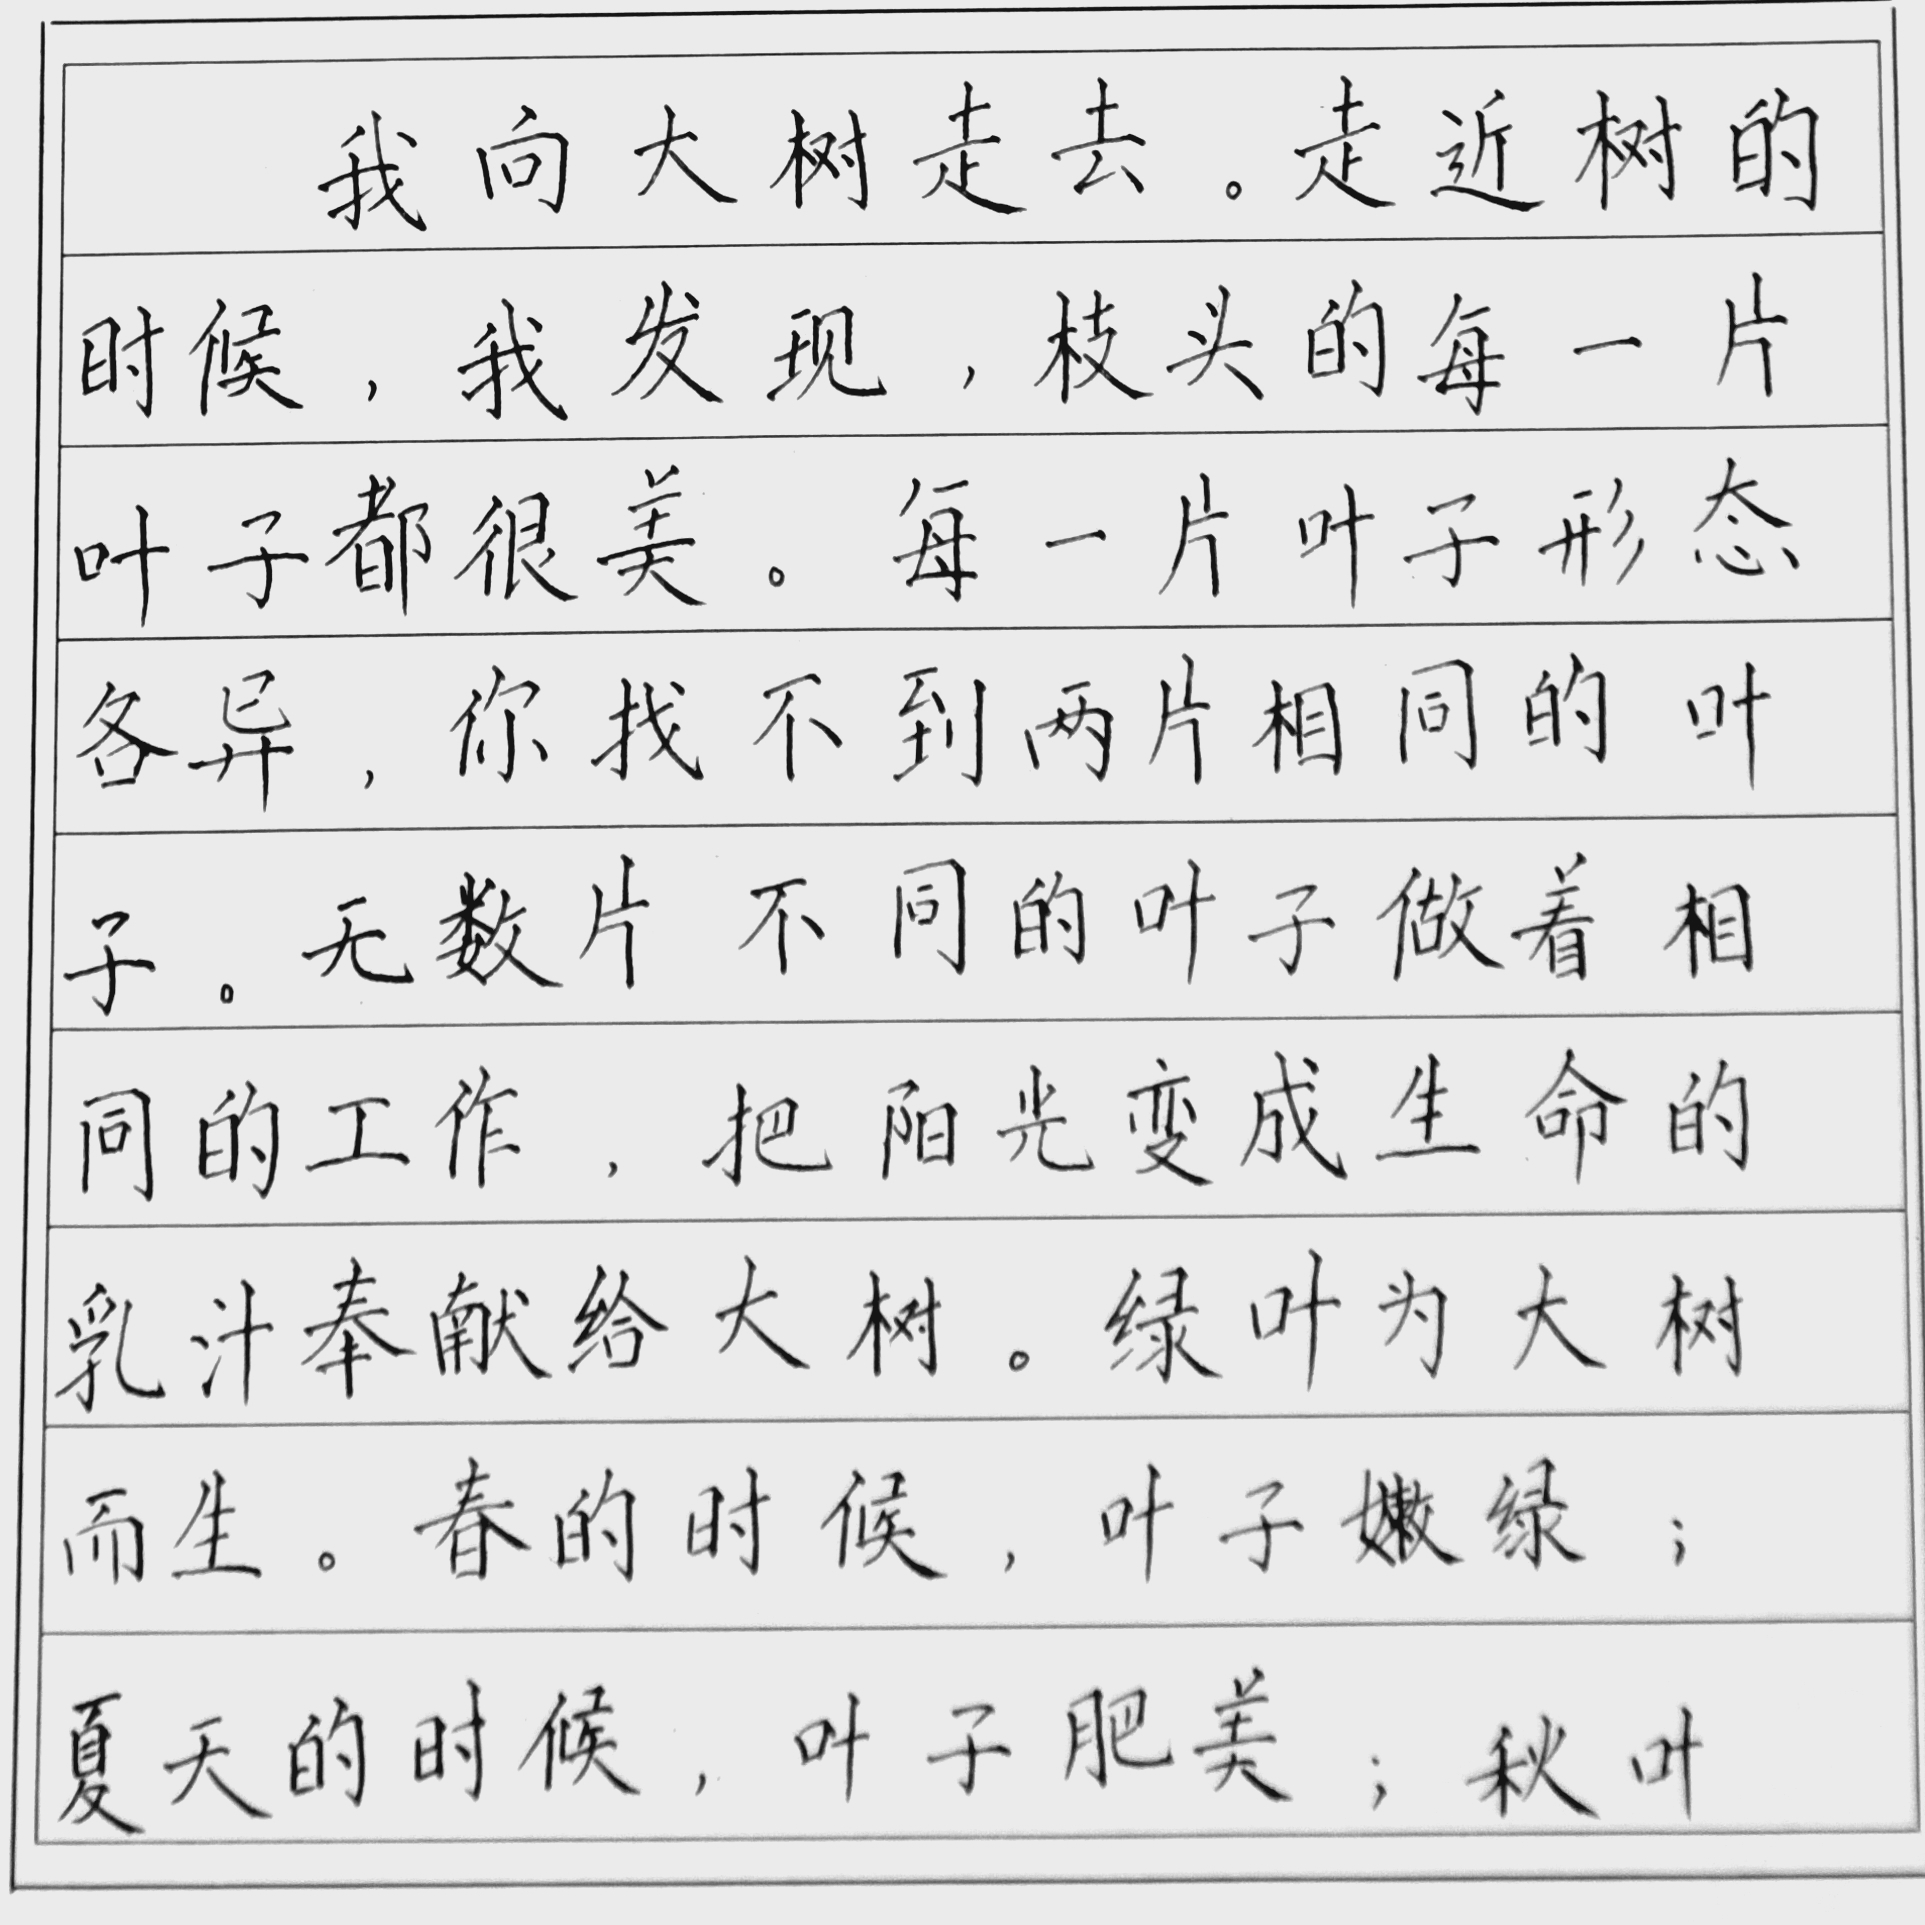 我向大树走去。走近树的
时候，我发现，枝头的每一片
叶子都很美。每一片叶子形态
各异，你找不到两片相同的叶
子。无数片不同的叶子做着相
同的工作，把阳光变成生命的
乳汁奉献给大树。绿叶为大树
而生。春的时候，叶子嫩绿；
夏天的时候，叶子肥美；秋叶